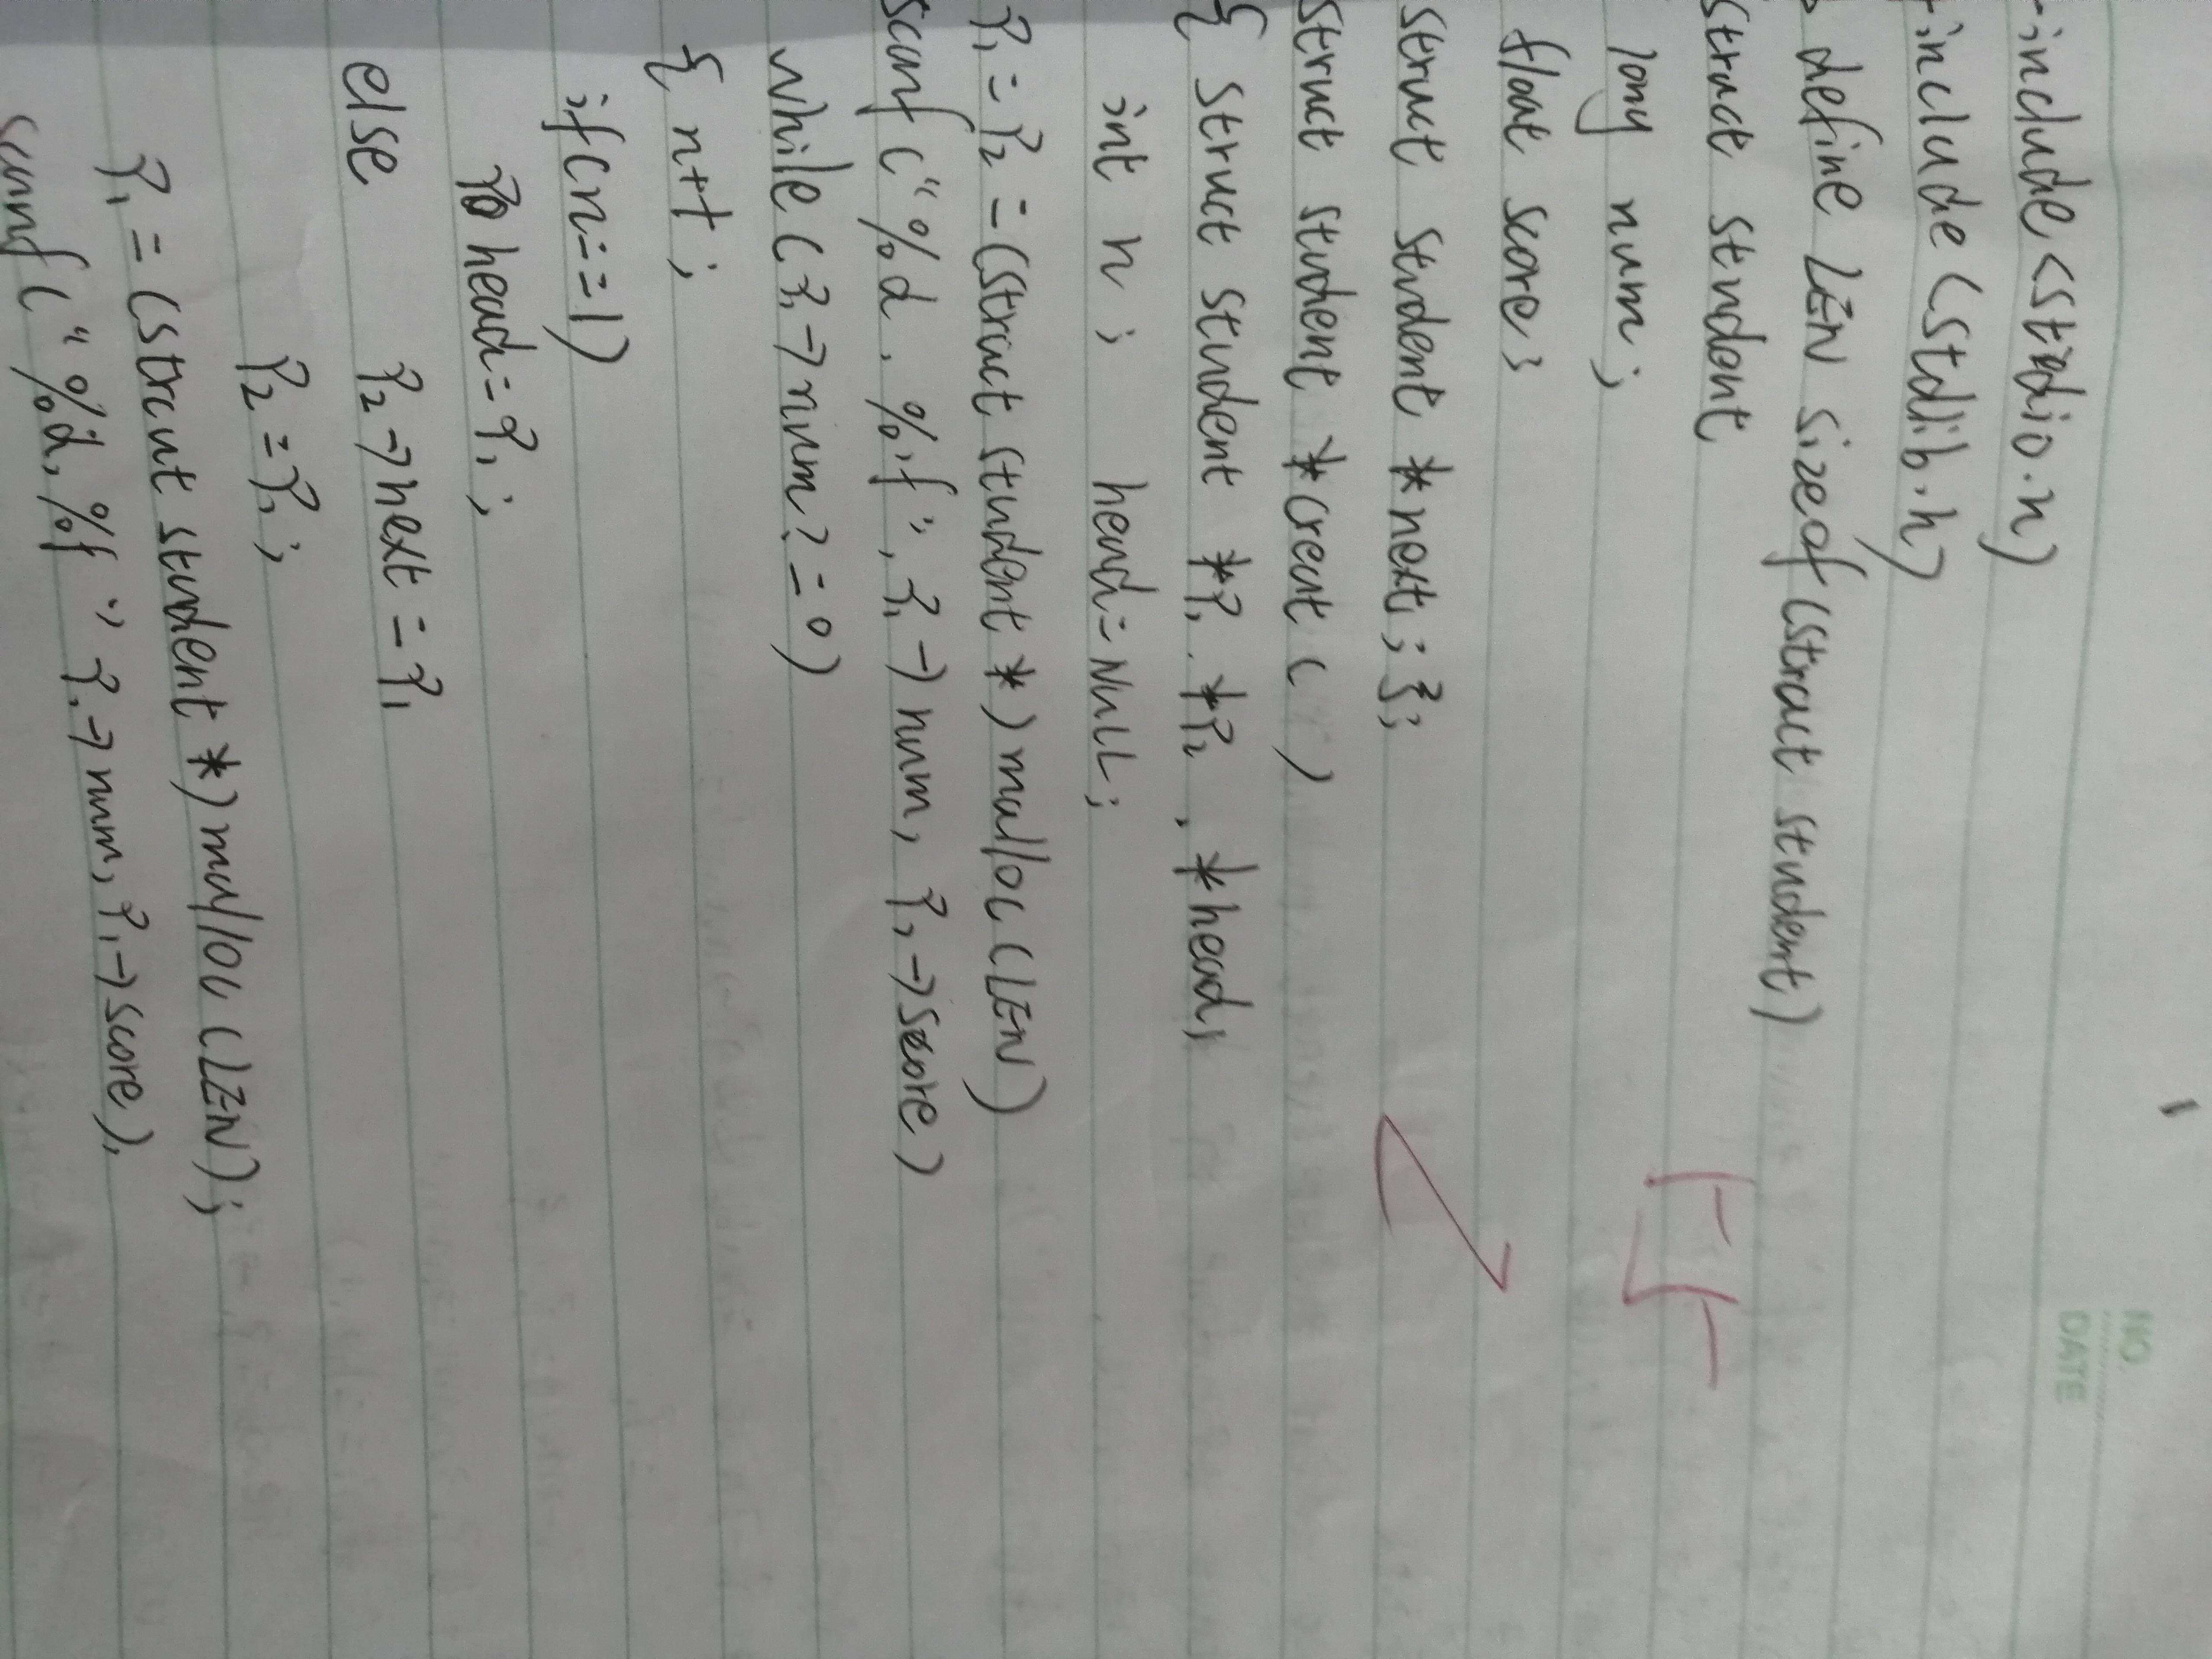 NO.
DATE
include<stdio.h>
include<stdlib.h>
define LEN sizeof(struct student)
struct student
long num;
float score;
struct student *next;};
struct student *creat( )
{ struct student *p1, *p2, *head,
int n; head=NULL;
p1=p2=(struct student *)malloc(LEN)
scanf("%d, %f", p1→num, p1→score)
while(p1→num!=0)
{ n++;
if(n==1)
head=p1;
else p2→next=p1
p2=p1;
p1=(strcut student *)malloc(LEN);
scanf("%d,%f" p1→num,p1→score),